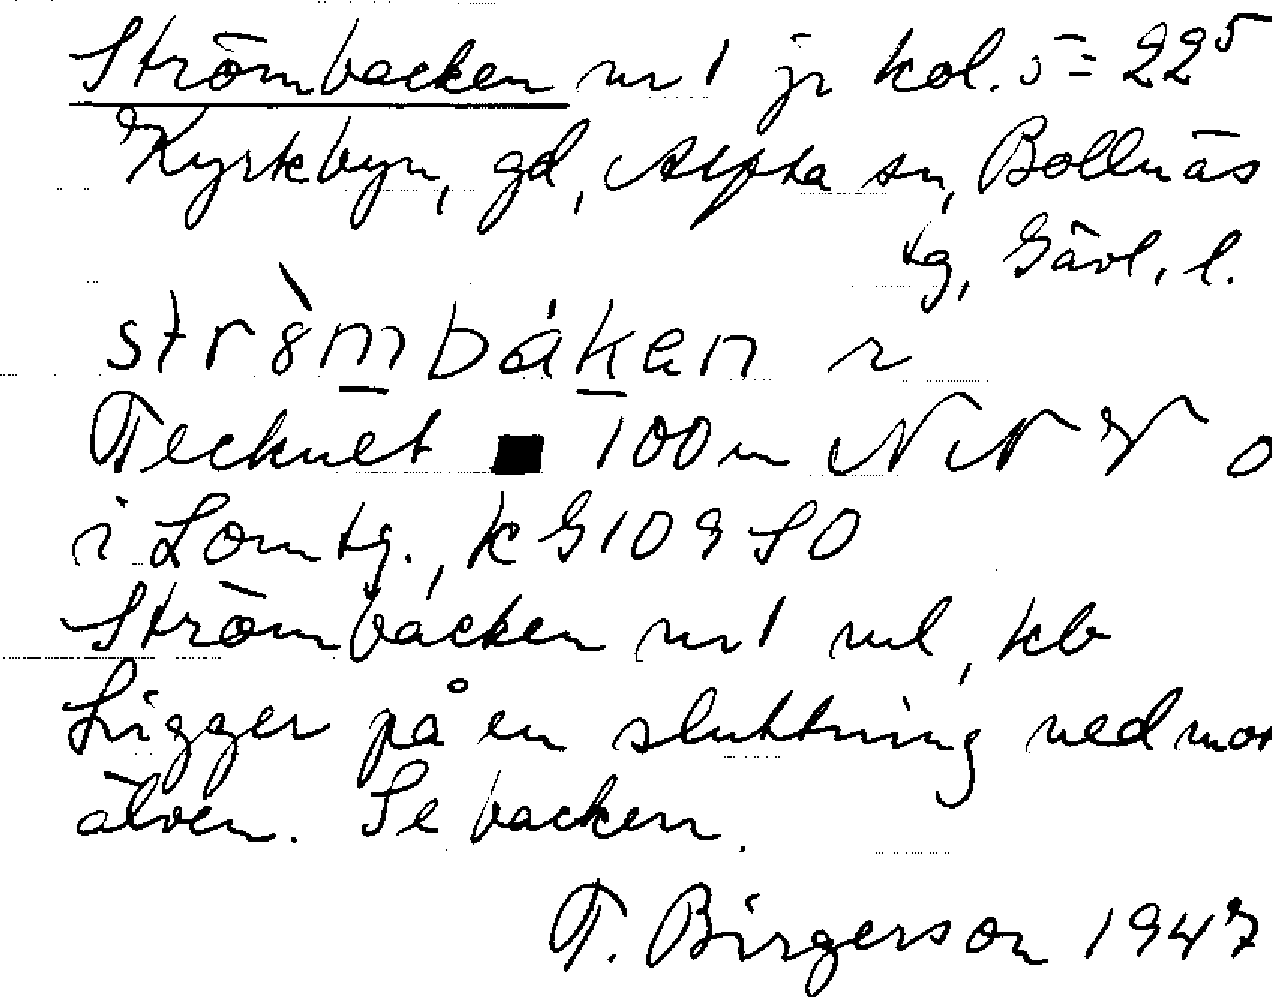 Strömbacken nr 1 jr kol. 5 = 22⁵
Kyrkbyn, gd, Alfta sn, Bollnäs
tg, Gävl. l.
strö̀mbákan r
Tecknet ■ 100 m NNV o
i Lomtg., kG1098O
Strömbacken nr 1 ml, kb
Ligger på en sluttning ned mot
älven. Se backen.
T. Birgerson 1947